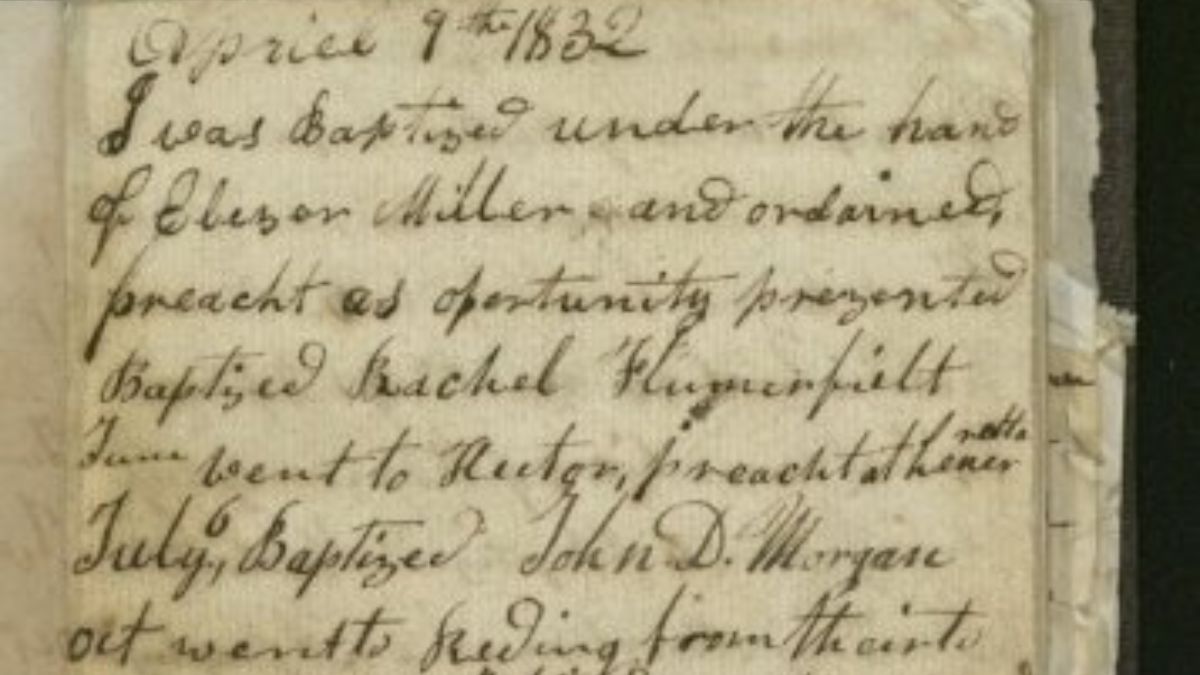 Apriel 9th 1832
I was Baptized under the hand
of Elezer Miller and ordained,
preacht as oportunity prezented
Baptized Rachel Flumerfielt
June went to Hector, preacht at henerretta
July 6, Baptized John D. Morgan
oct went to Reding from thair to